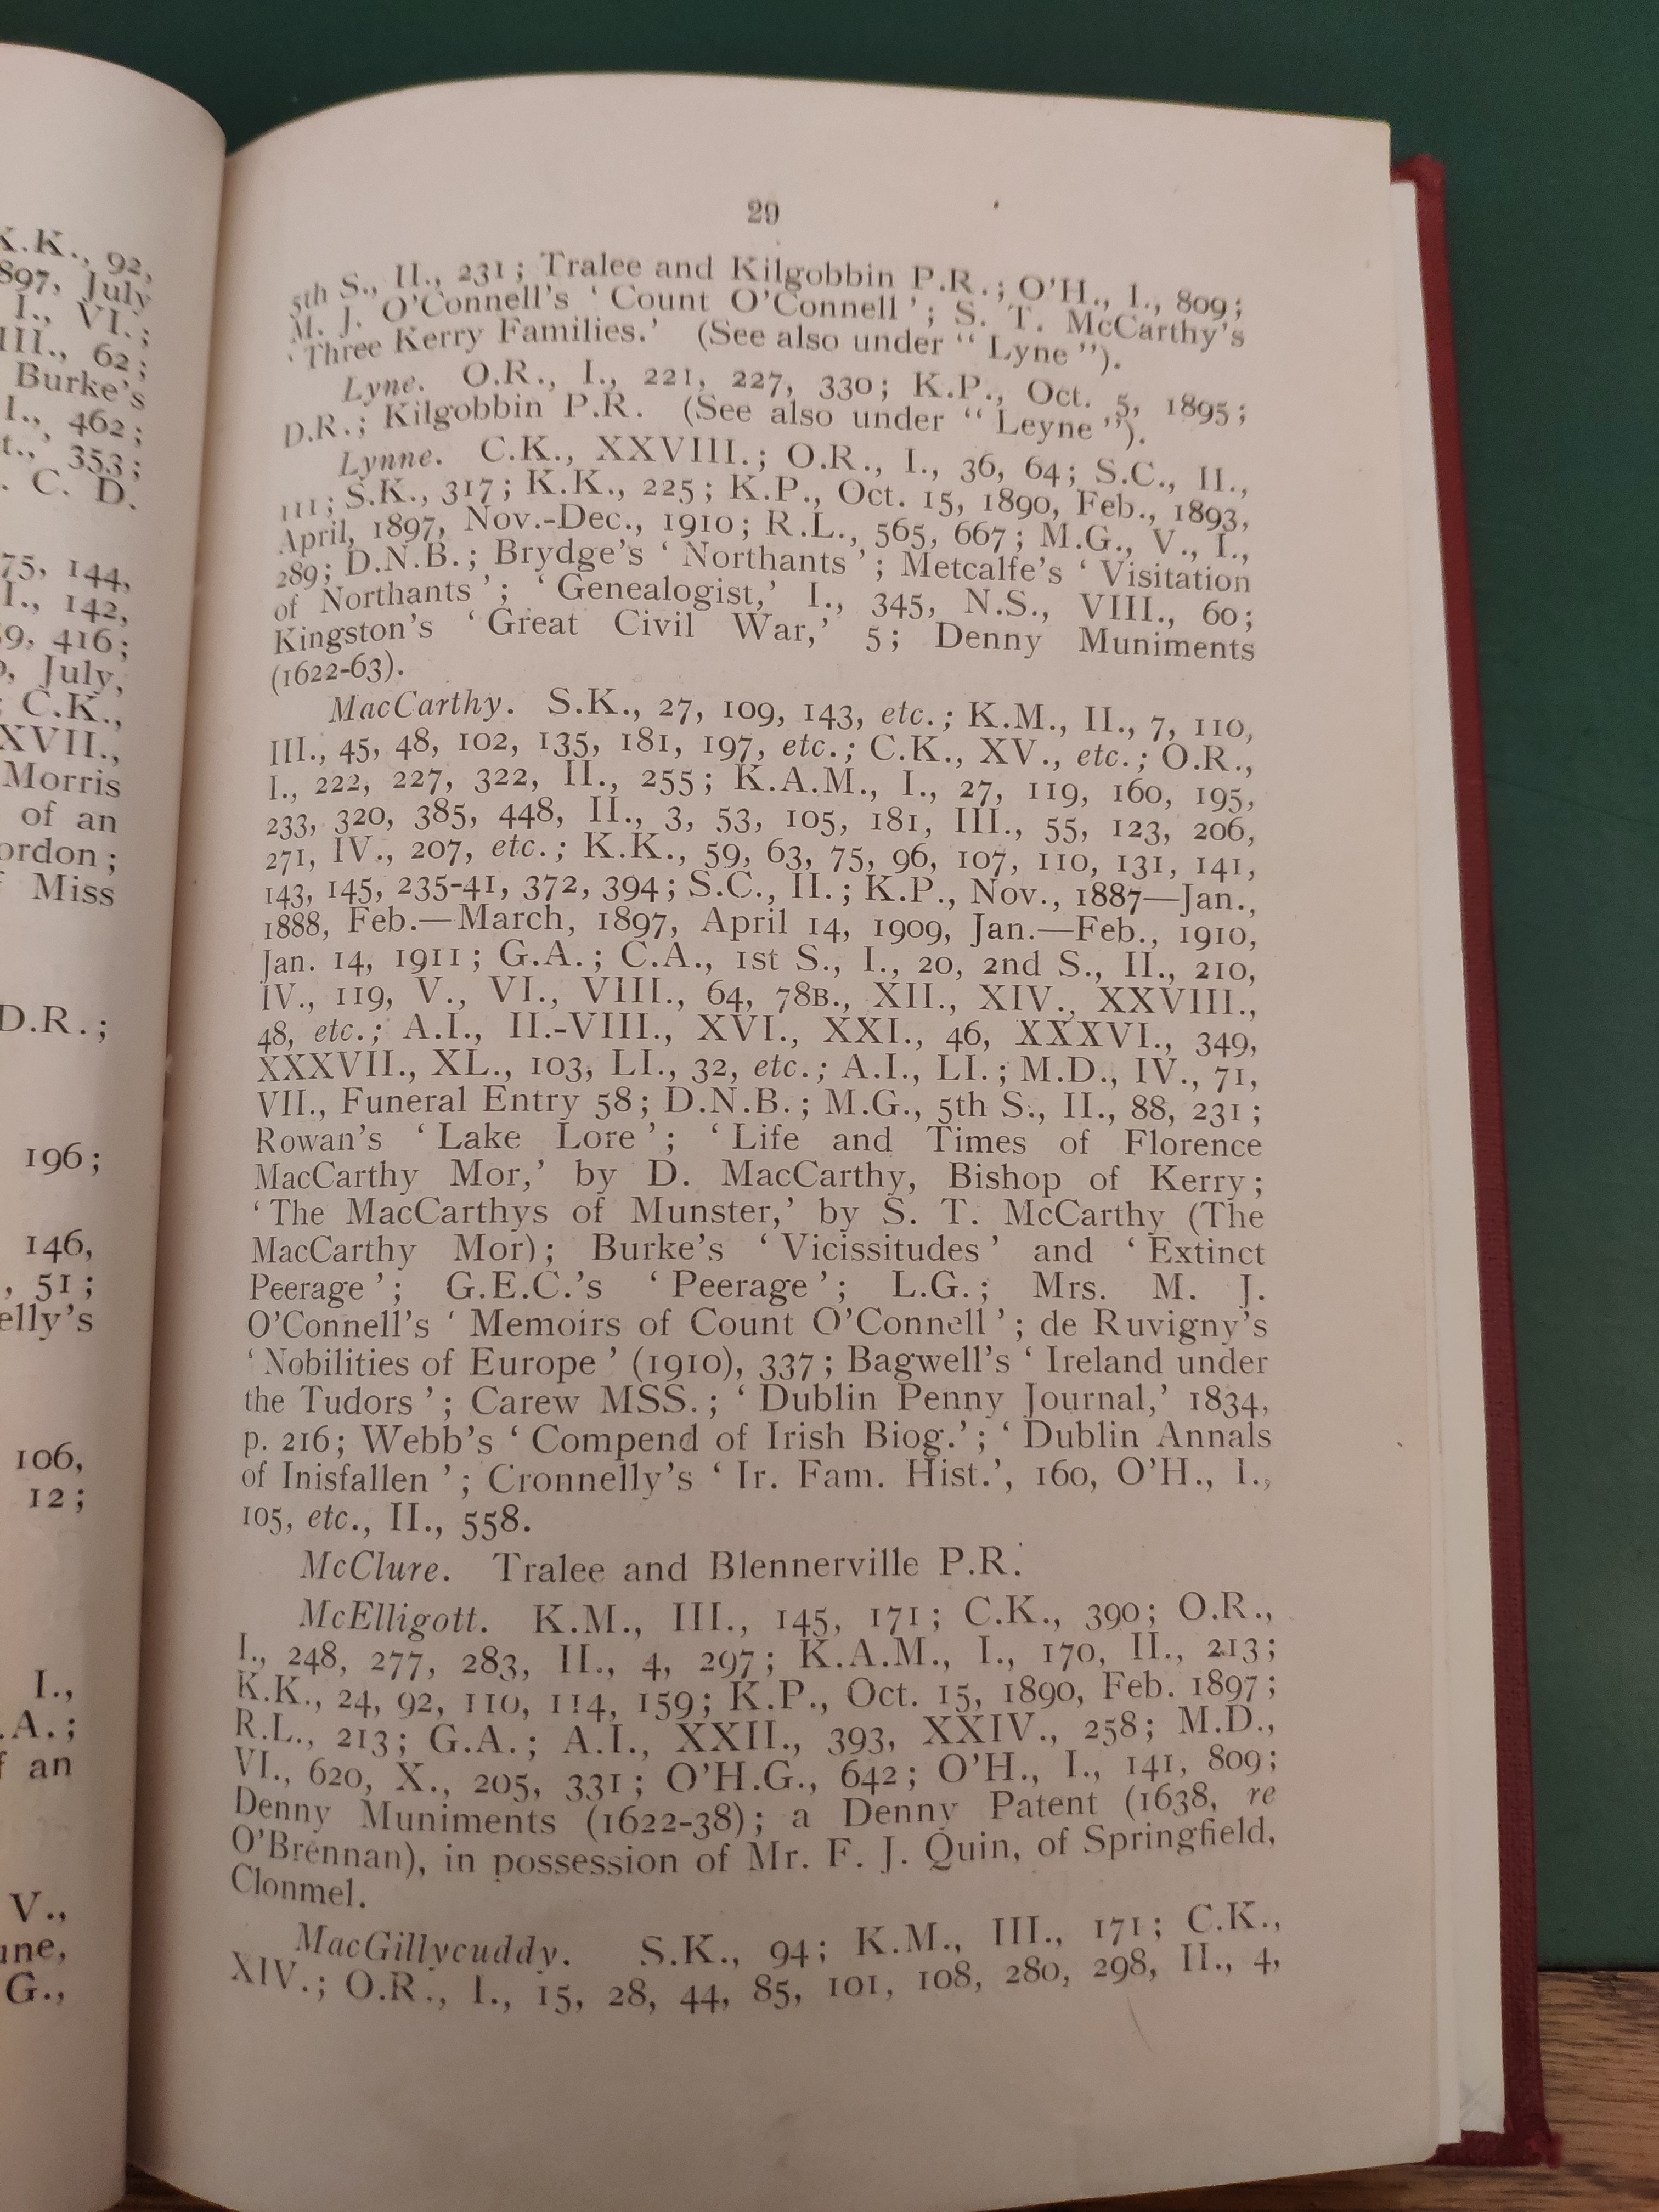 K.K., 92,
897, July
I., VI.;
III., 62;
Burke's
I., 462;
t., 353;
. C. D.
75, 144,
I., 142,
9, 416;
, July,
C.K.,
XVII.,
Morris
of an
ordon;
Miss
D.R.;
196;
146,
, 51;
elly's
106,
12;
I.,
.A.;
an
V.,
une,
G.,
29
5th S., II., 231; Tralee and Kilgobbin P.R.; O'H., I., 809;
M. J. O'Connell's ‘Count O'Connell’; S. T. McCarthy's
‘Three Kerry Families.’ (See also under “Lyne”).
Lyne. O.R., I., 221, 227, 330; K.P., Oct. 5, 1895;
D.R.; Kilgobbin P.R. (See also under “Leyne”).
Lynne. C.K., XXVIII.; O.R., I., 36, 64; S.C., II.,
111; S.K., 317; K.K., 225; K.P., Oct. 15, 1890, Feb., 1893,
April, 1897, Nov.-Dec., 1910; R.L., 565, 667; M.G., V., I.,
289; D.N.B.; Brydge's ‘Northants’; Metcalfe's ‘Visitation
of Northants’; ‘Genealogist,’ I., 345, N.S., VIII., 60;
Kingston's ‘Great Civil War,’ 5; Denny Muniments
(1622-63).
MacCarthy. S.K., 27, 109, 143, etc.; K.M., II., 7, 110,
III., 45, 48, 102, 135, 181, 197, etc.; C.K., XV., etc.; O.R.,
I., 222, 227, 322, II., 255; K.A.M., I., 27, 119, 160, 195,
233, 320, 385, 448, II., 3, 53, 105, 181, III., 55, 123, 206,
271, IV., 207, etc.; K.K., 59, 63, 75, 96, 107, 110, 131, 141,
143, 145, 235-41, 372, 394; S.C., II.; K.P., Nov., 1887—Jan.,
1888, Feb.—March, 1897, April 14, 1909, Jan.—Feb., 1910,
Jan. 14, 1911; G.A.; C.A., 1st S., I., 20, 2nd S., II., 210,
IV., 119, V., VI., VIII., 64, 78B., XII., XIV., XXVIII.,
48, etc.; A.I., II.-VIII., XVI., XXI., 46, XXXVI., 349,
XXXVII., XL., 103, LI., 32, etc.; A.I., LI.; M.D., IV., 71,
VII., Funeral Entry 58; D.N.B.; M.G., 5th S., II., 88, 231;
Rowan's ‘Lake Lore’; ‘Life and Times of Florence
MacCarthy Mor,’ by D. MacCarthy, Bishop of Kerry;
‘The MacCarthys of Munster,’ by S. T. McCarthy (The
MacCarthy Mor); Burke's ‘Vicissitudes’ and ‘Extinct
Peerage’; G.E.C.'s ‘Peerage’; L.G.; Mrs. M. J.
O'Connell's ‘Memoirs of Count O'Connell’; de Ruvigny's
‘Nobilities of Europe’ (1910), 337; Bagwell's ‘Ireland under
the Tudors’; Carew MSS.; ‘Dublin Penny Journal,’ 1834,
p. 216; Webb's ‘Compend of Irish Biog.’; ‘Dublin Annals
of Inisfallen’; Cronnelly's ‘Ir. Fam. Hist.’, 160, O'H., I.,
105, etc., II., 558.
McClure. Tralee and Blennerville P.R.
McElligott. K.M., III., 145, 171; C.K., 390; O.R.,
I., 248, 277, 283, II., 4, 297; K.A.M., I., 170, II., 213;
K.K., 24, 92, 110, 114, 159; K.P., Oct. 15, 1890, Feb. 1897;
R.L., 213; G.A.; A.I., XXII., 393, XXIV., 258; M.D.,
VI., 620, X., 205, 331; O'H.G., 642; O'H., I., 141, 809;
Denny Muniments (1622-38); a Denny Patent (1638, re
O'Brennan), in possession of Mr. F. J. Quin, of Springfield,
Clonmel.
MacGillycuddy. S.K., 94; K.M., III., 171; C.K.,
XIV.; O.R., I., 15, 28, 44, 85, 101, 108, 280, 298, II., 4,